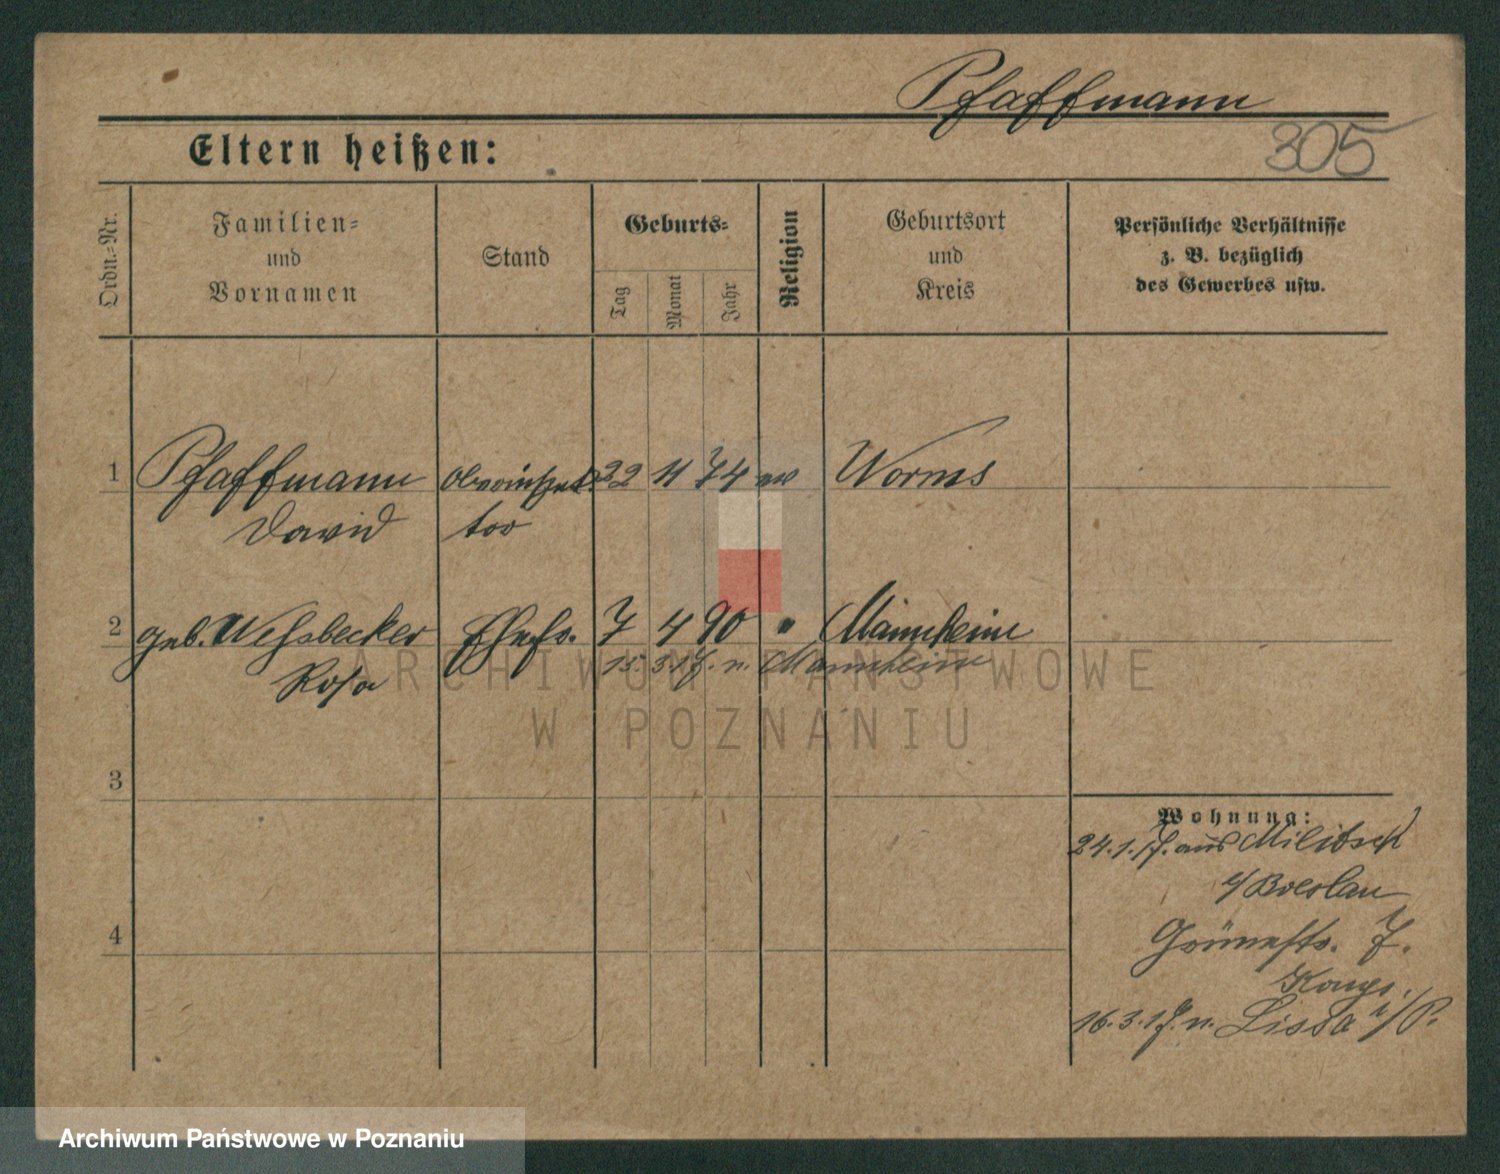 Pfaffmann
305
Eltern heißen:
Ordn.-Nr.
Familien-
und
Vornamen
Stand
Geburts-
Tag
Monat
Jahr
Religion
Geburtsort
und
Kreis
Persönliche Verhältnisse
z. B. bezüglich
des Gewerbes usw.
1 Pfaffmann 22 11 74 ev Worms
David
2 geb. Ehefr. 7 4 90 " Mannheim
Rosa 15. 3. 17. n. Mannheim
3
Wohnung:
24.1.17. aus Militsch
Breslau
4
7.
16.3.17. n. Lissa i/P.
ARCHIWUM PAŃSTWOWE
W POZNANIU
Archiwum Państwowe w Poznaniu